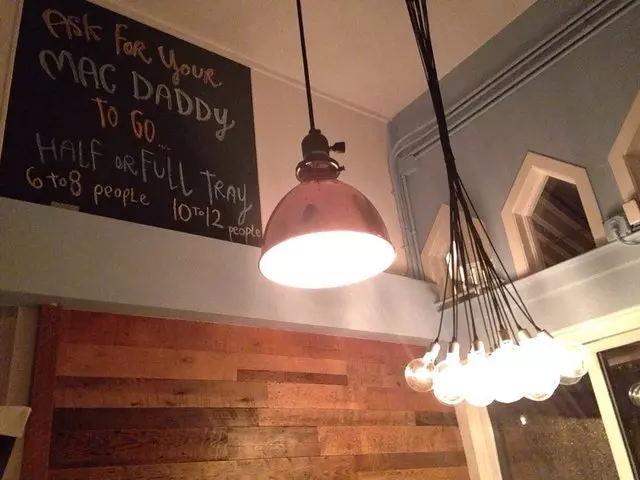 ASK FOR YOUR
MAC DADDY
TO GO...
HALF OR FULL TRAY
6 to 8 people 10 TO 12 people